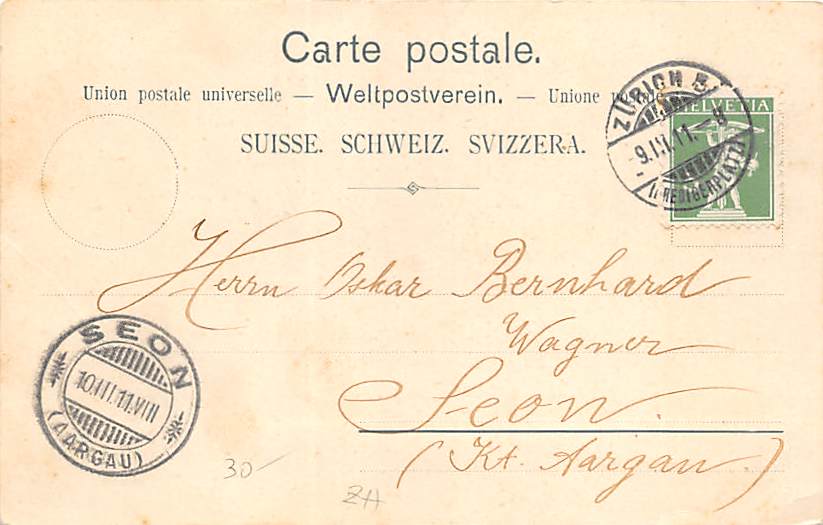 Carte postale.
Union postale universelle — Weltpostverein. — Unione postale
SUISSE. SCHWEIZ. SVIZZERA.
ZÜRICH 5
-9.III.11.-8
HELVETIA
Herrn Oskar Bernhard
Wagner
Seon.
(Kt. Aargau.)
SEON
10.III.11.VIII
(AARGAU)
30-
ZH